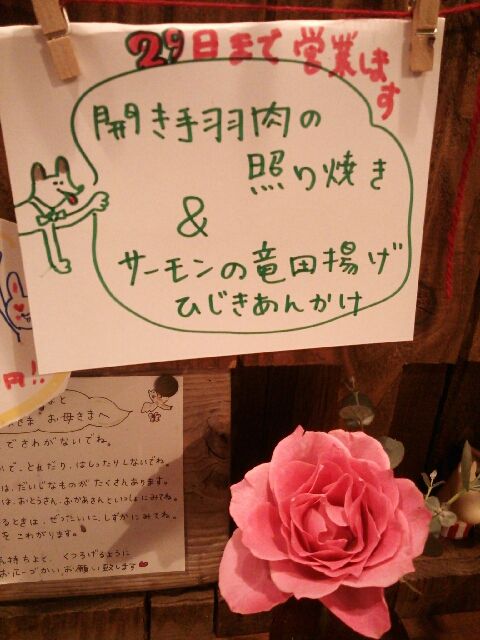 29日まで営業します
開き手羽肉の
照り焼き
&
サーモンの竜田揚げ
ひじきあんかけ
円!!
お母さまへ
でさわがないでね。
で、とんだり、はしったりしないでね。
は、だいじなものがたくさんあります。
は、おとうさん、おかあさんといっしょにみてね。
るときは、ぜったいに、しずかにみてね。
をこわがります。
気持ちよと、くつろげるように
お願い致します